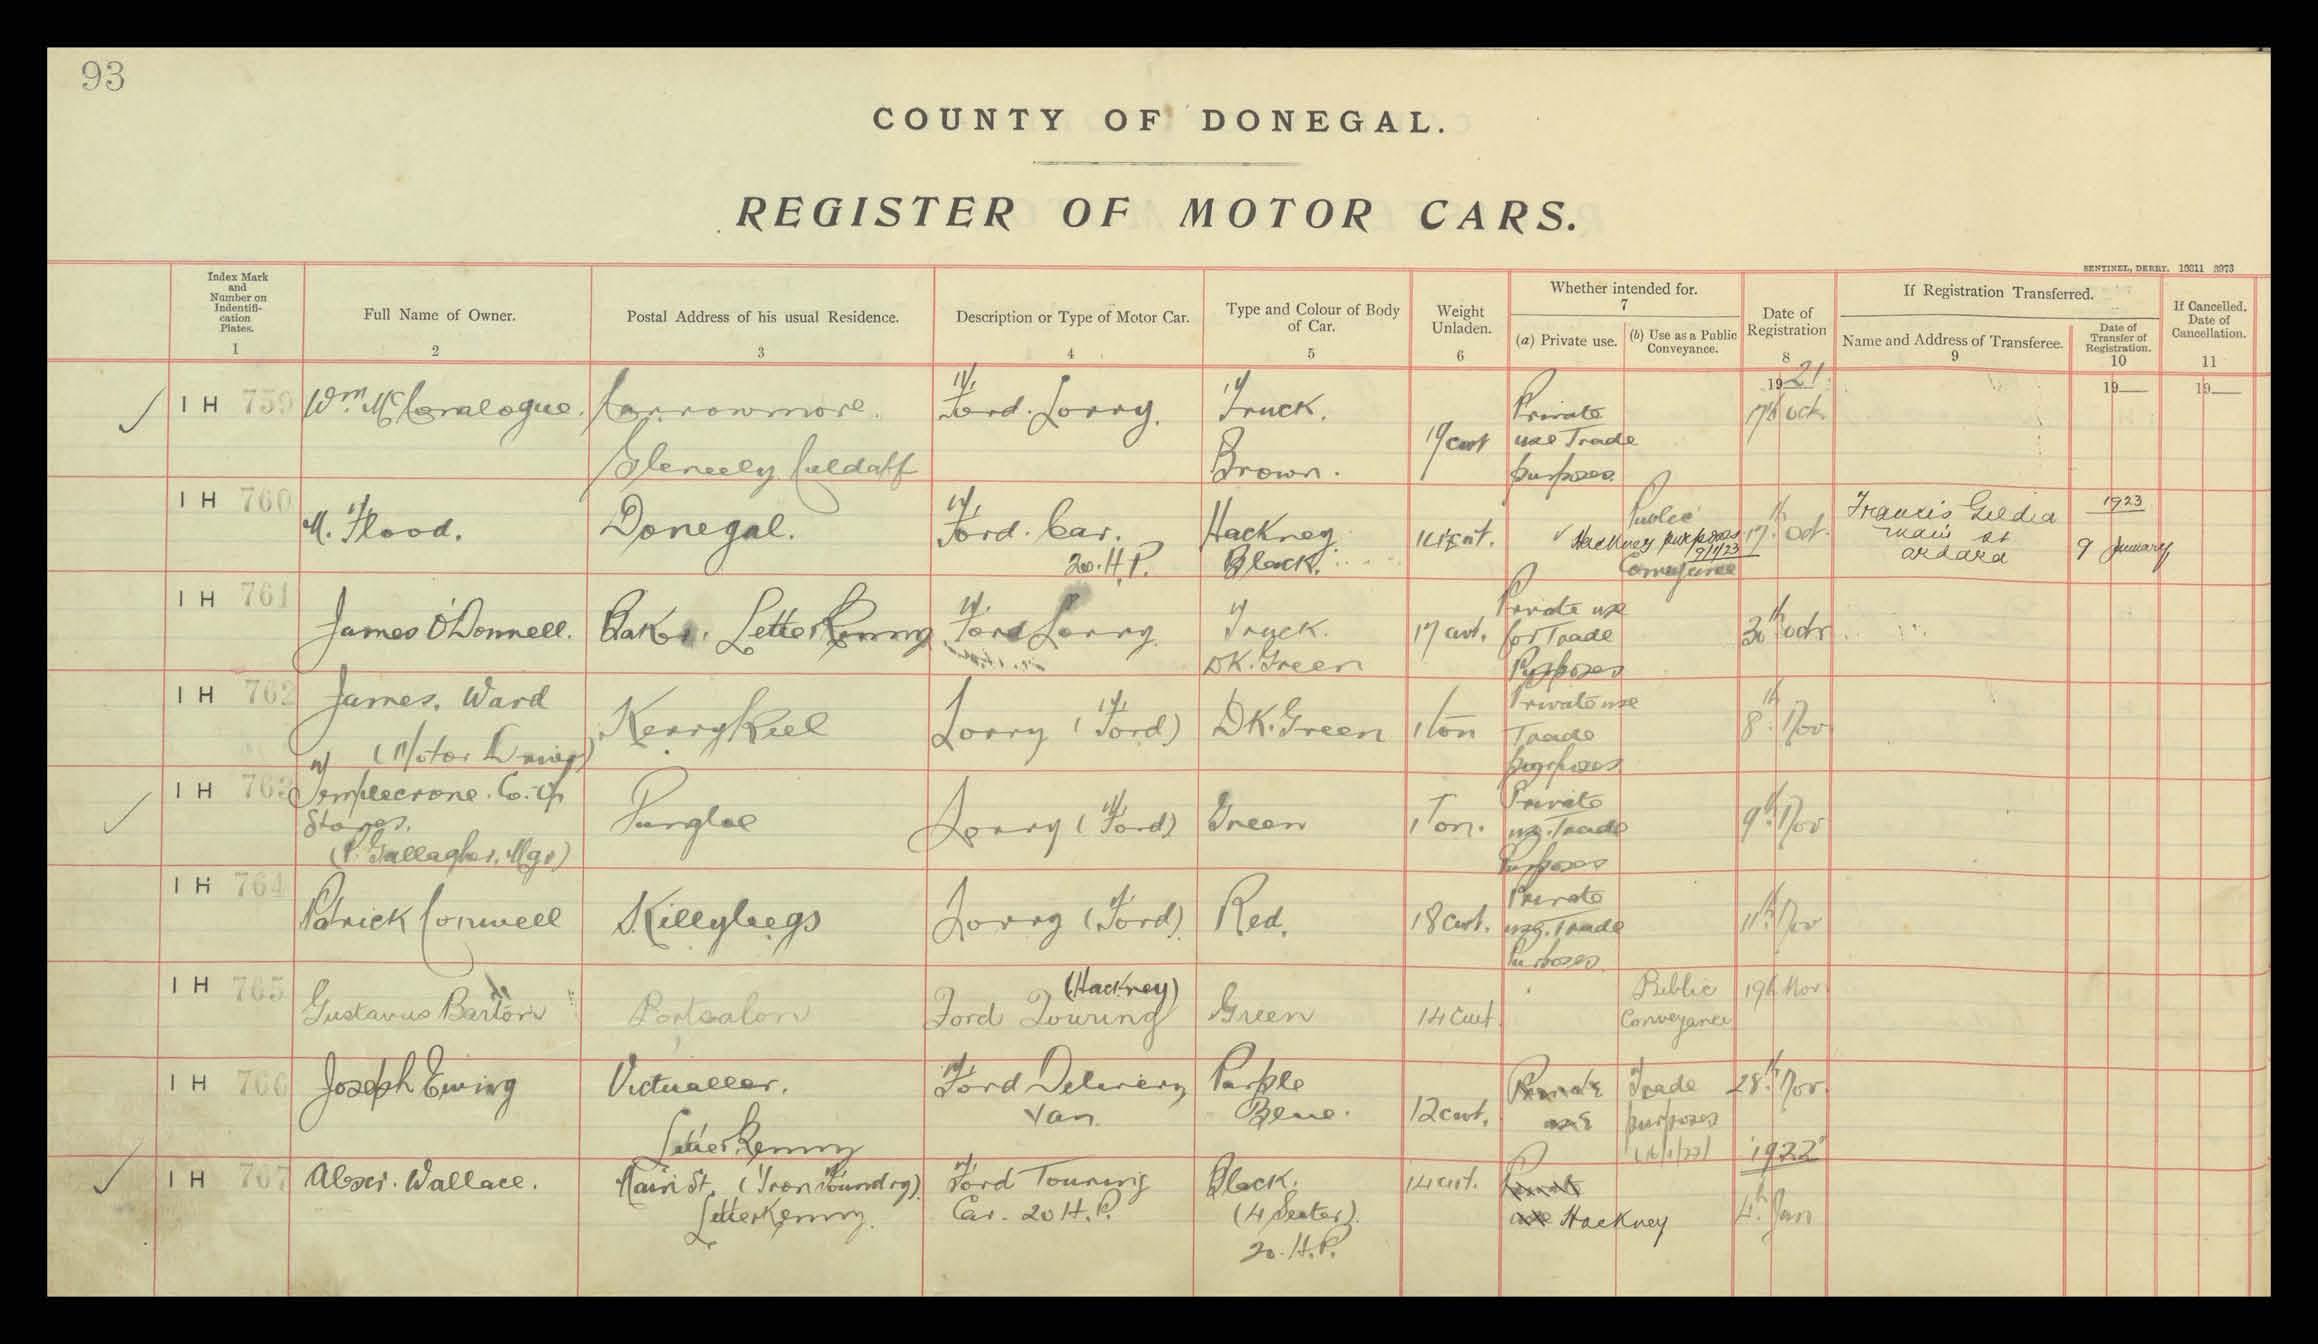 93
COUNTY OF DONEGAL.
REGISTER OF MOTOR CARS.
SENTINEL, DERRY. 16311 3973
Index Mark and Number on Indentifi- cation Plates. 1
Full Name of Owner. 2
Postal Address of his usual Residence. 3
Description or Type of Motor Car. 4
Type and Colour of Body of Car. 5
Weight Unladen. 6
Whether intended for. 7
(a) Private use.
(b) Use as a Public Conveyance.
Date of Registration 8
If Registration Transferred.
Name and Address of Transferee. 9
Date of Transfer of Registration. 10
If Cancelled. Date of Cancellation. 11
1921 19 19
IH 759 Wm. McConalogue. Carrowmore. Ford. Lorry. Truck. Private 17th Oct.
Gleneely Culdaff Brown. 19 cwt use Trade
purposes
IH 760 M. Flood. Donegal. Ford. Car. Hackney Public 17th Oct. Francis Gildea 1923
20. H.P. Black. Hackney purposes 9/1/23 Main St 9 January
Conveyance Ardara
IH 761 James O'Donnell. Baker. Letterkenny Ford Lorry Truck. 17 cwt. Private use 30th Octr
DK. Green for Trade
Purposes
IH 762 James. Ward Kerrykeel Lorry (Ford) DK. Green 1 Ton Private use 8th. Nov
(Motor Driver) Trade
purposes
IH 763 Templecrone. Co. Op Dungloe Lorry (Ford) Green 1 Ton. Private 9th. Nov
Stores. use. Trade
(P. Gallagher, Mgr) Purposes
IH 764 Patrick Conwell Killybegs Lorry (Ford) Red. 18 cwt. Private 11th Nov
use. Trade
Purposes.
IH 765 Gustavus Barton Portsalon Ford Touring (Hackney) Green 14 cwt. Public 19th Nov
Conveyance
IH 766 Joseph Ewing Victualler. Ford Delivery Purple 12 cwt. Private Trade 28th. Nov.
Letterkenny Van Blue. use purposes
1922
IH 767 Alexr. Wallace. Main St. (Iron Foundry) Ford Touring Black. 14 cwt. Private 4th. Jan
Letterkenny. Car. 20 H.P. (4 Seater). use Hackney
20. H.P.